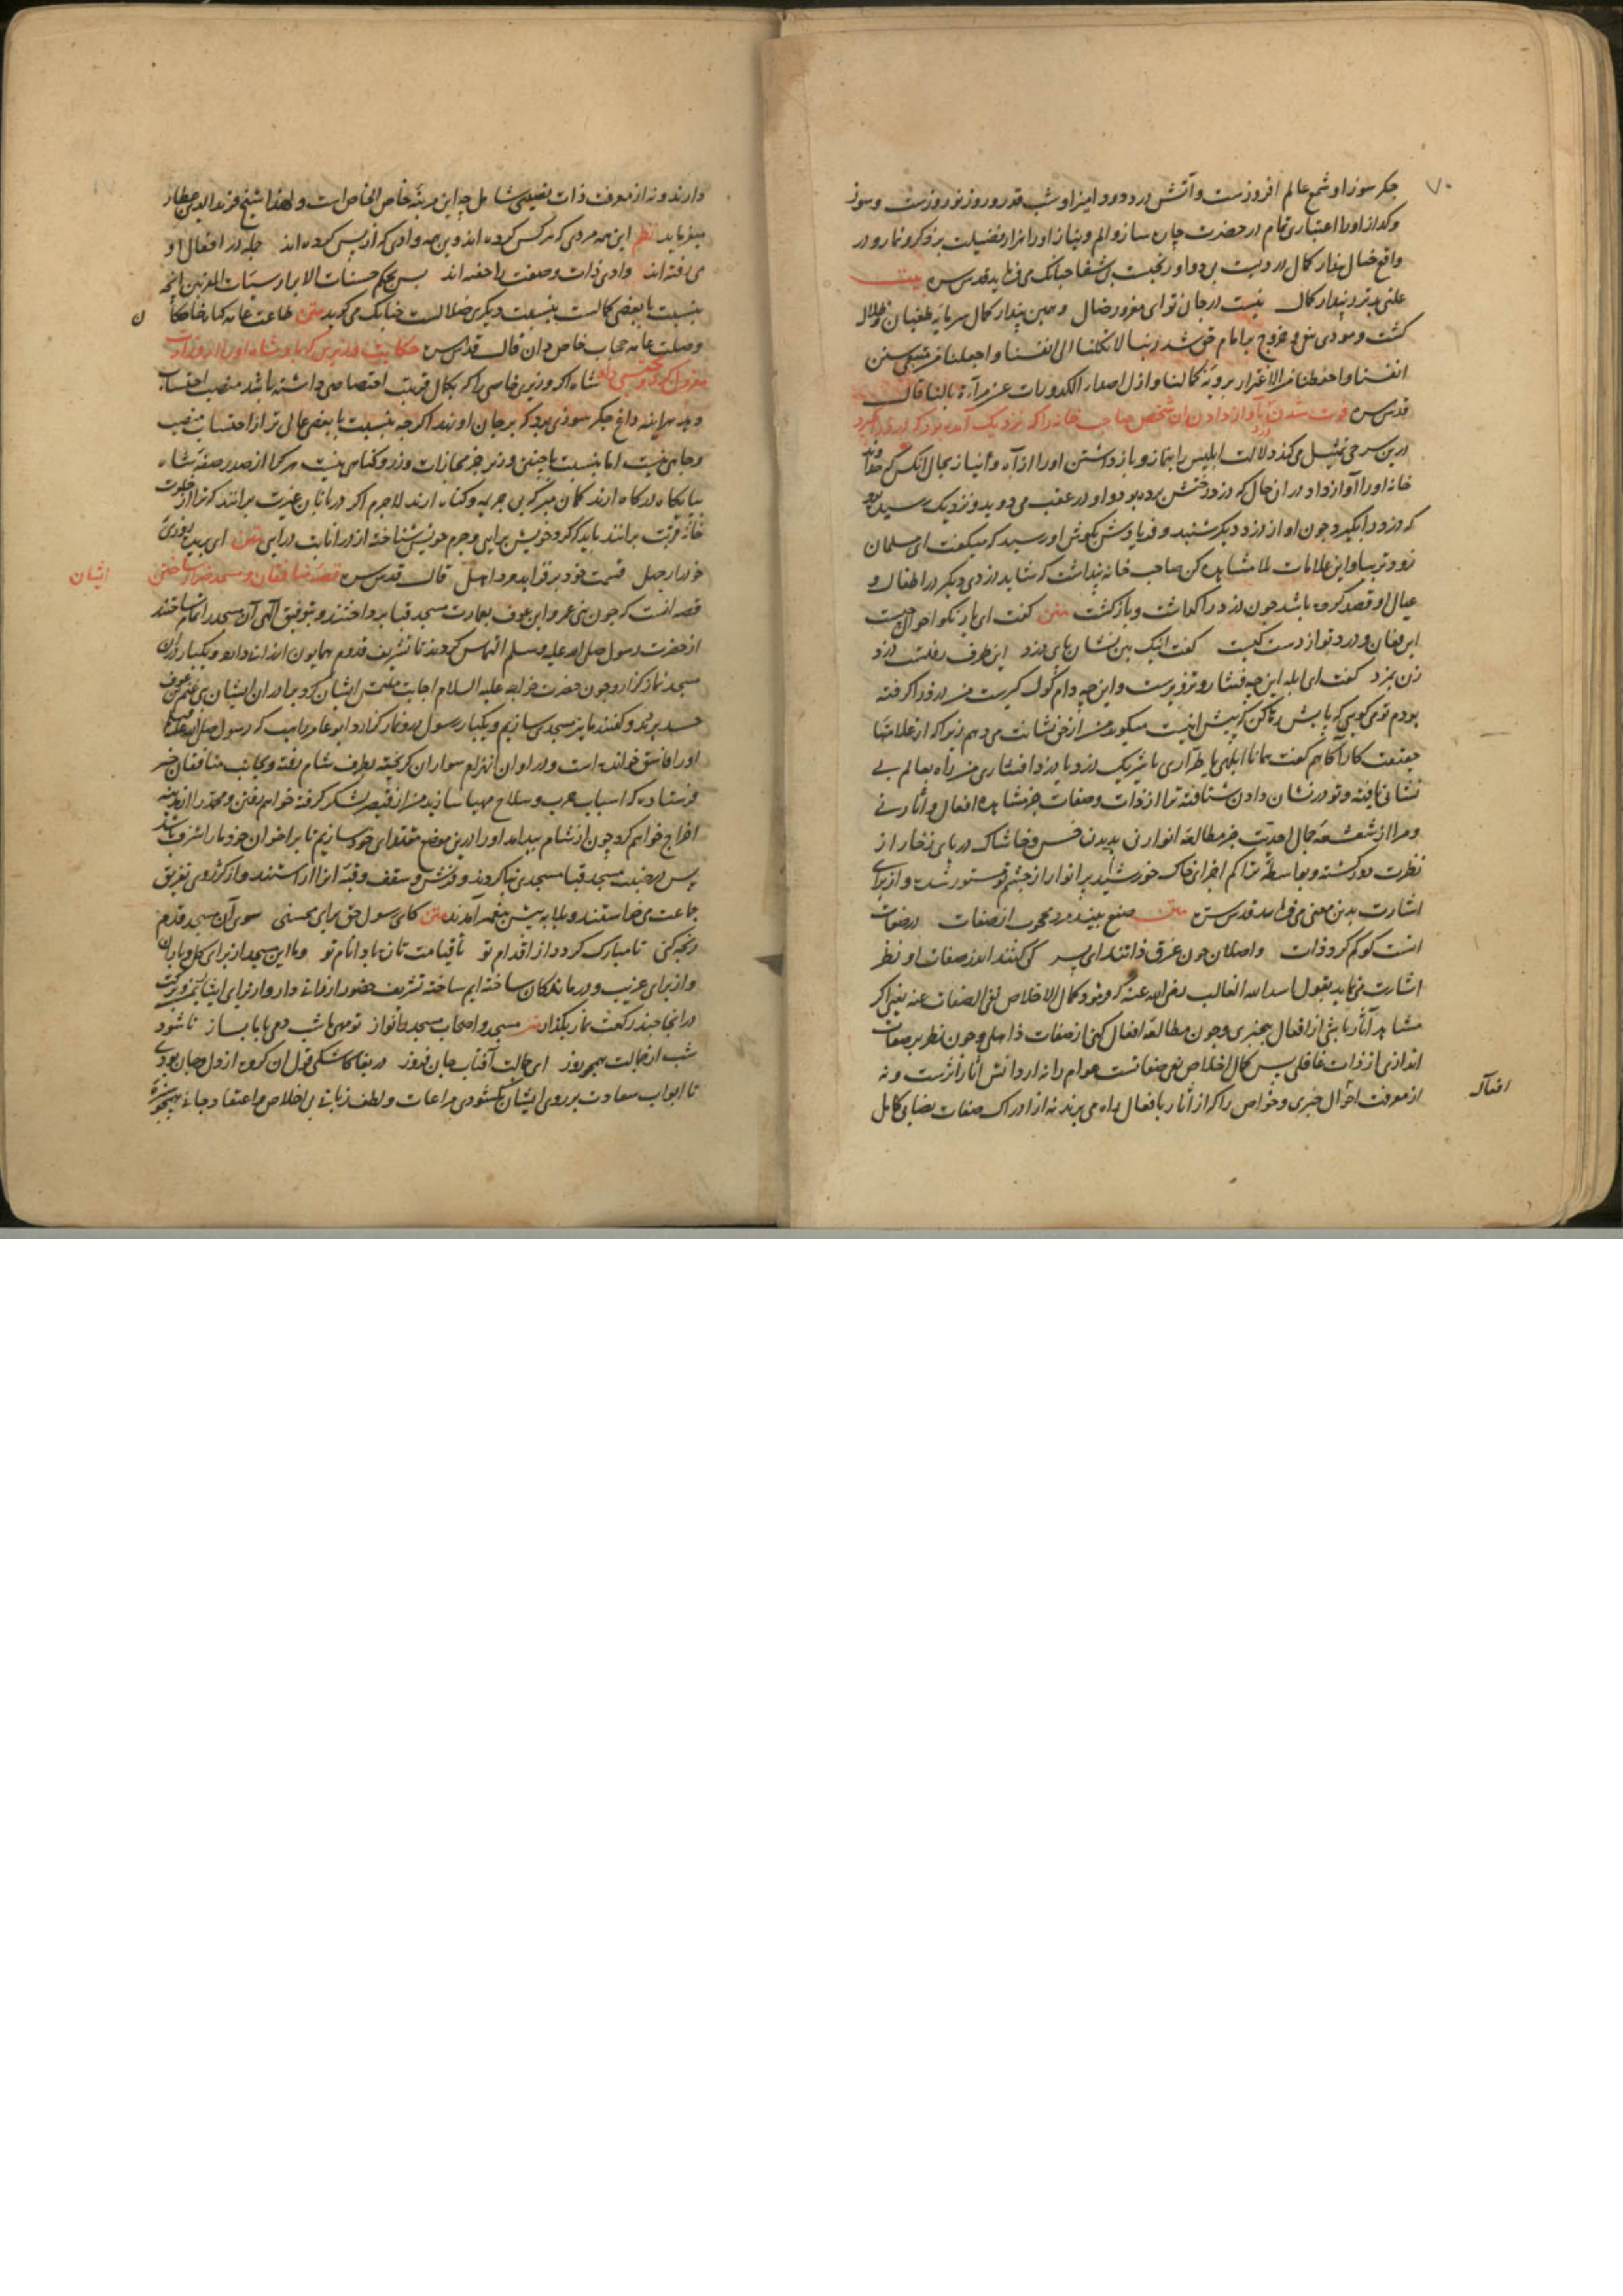 جکر سوز او شمع عالم افروزست و آتش درد دود امیز او شب قدر و روز نوروزست و سوز
و کداز او را اعتباری تمام در حضرت جان ساز و الم و نیاز او را هزار فضیلت بر ذکر و نماز و در
واقع خیال پندار کمال دردیست بی دوا و رنجیست بی شفا جنانک می فرماید قدس سره بیت
علتی بدتر ز پندار کمال نیست در جان تو ای مغرور ضال و همین پندار کمال سرمایه طغیان و ضلال
کشت و مودی بغی و خروج بر امام حق شد ربنا لا تکلنا الی انفسنا و اجعلنا من
انفسنا و احفظنا من الاغترار برویة کمالنا و ازل اصداء الکدورات عن مرآة بالنا قال
قدس سره فوت شدن دزد بآواز دادن آن شخص صاحب خانه را که نزدیک آمده بود که دزد را بگیرد
درین سر می تمثیل می کند دلالت ابلیس را بنماز و باز داشتن او را از آه و نیاز بحال آنکس که خداوند
خانه او را آواز داد در ان حال که دزد رختش برده بود و او در عقب می دوید و نزدیک رسیده بود
که دزد را بگیرد جون او از دزد دیکر شنید و فریادش بکوش او رسید که میکفت ای مسلمان
زودتر بیا و این علامات بلا مشاهده کن صاحب خانه پنداشت که شاید دزدی دیکر در اطفال و
عیال او قصد کرده باشد جون دزد را کذاشت و بازکشت متن کفت ای یار نکو احوال جیست
این فغان و درد تو از دست کیست کفت اینک بین نشان پای دزد این طرف رفتست دزد
زن بمزد کفت ای ابله این جه فشار و تزویرست و این جه دام کول کیریست من دزد را کرفته
بودم تو می کویی که پایش رها کن که پیش اینست میکوید من از حق نشانت می دهم زیرا که از علامتها
حقیقت کار آکاهم کفت همانا ابلهی یا طراری یا شریک دزد یا دزد افشاری من راه بعالم بی
نشانی یافته و تو در نشان دادن شتافته ترا از ذات و صفات جز مشاهده افعال و آثار نی
و مرا از شعشعه جمال احدیت جز مطالعه انوار نی بدیدن خس و خاشاک دریای زخار از
نظرت دور کشته و بواسطه تراکم اجزای خاک خورشید پر انوار از جشم تو مستور شده و از برای
اشارت بدین معنی می فرماید قدس سره متن صنع بیند مرد محجوب از صفات در صفات
انست کو کم کرد ذات واصلان جون غرق ذاتند ای پسر کی کنند اندر صفات او نظر
اشارت می نماید بقول اسد الله الغالب رضی الله عنه که فرمود کمال الاخلاص نفی الصفات عنه یعنی اکر
مشاهد آثار باشی از افعال بیخبری و جون مطالعه افعال کنی از صفات ذاهلی و جون نظر بر صفات
اندازی از ذات غافلی پس کمال اخلاص نفی صفاتست عوام را نه از دانش آثار اثرست و نه
از معرفت احوال خبری و خواص را که از آثار بافعال راه می برند نه از ادراک صفات نصابی کامل
افعال
۷۰
دارند و نه از معرفت ذات نصیبی شامل جه این مرتبه خاص الخاص است و لهذا شیخ فرید الدین عطار
میفرماید نظم این همه مردی که هر کس کرده اند وین همه وادی که از پس کرده اند جمله در افعال او
می رفته اند وادی ذات و صفت را خفته اند پس بحکم حسنات الابرار سیئات المقربین انچه
بنسبت با بعضی کمالست بنسبت دیکری ضلالست جنانک می کوید متن طاعت عامه کناه خاصکان
وصلت عامه حجاب خاص دان قال قدس سره حکایت وزیری که پادشاه او را از وزارت
معزول کرد و محتسبی داد شاه اکر وزیر خاصی را که بکمال قربت اختصاصی داشته باشد منصب احتساب
دهد هر آینه داغ جکر سوزی بود که بر جان او نهد اکرچه بنسبت با بعضی عالی تر از احتساب منصب
و جاهی نیست اما بنسبت با جنین وزیر جز مجازات وزر و کناهی نیست هر کرا از صدر صفه شاه
بپایکاه درکاه ارند کمان مبر که بی جریمه و کناه ارند لاجرم اکر دربانان عزت برانند که ترا از خلوت
خانه قربت برانند باید که کرد خویش برایی و جرم خویش شناخته از در انابت درایی متن ای برین بوری
خود از جهل قسمت خود بر فزاید مرد اهل قال قدس سره قصه منافقان و مسجد ضرار ساختن
ایشان
قصه انست که جون بنی عمرو ابن عوف بعمارت مسجد قبا برداختند و بتوفیق الهی آن مسجد را تمام ساختند
از حضرت رسول صلی الله علیه و سلم التماس کردند تا بتشریف قدوم همایون ارزانی دارد و یکبار در آن
مسجد نماز کزارد و جون حضرت خواجه علیه السلام اجابت ملتمس ایشان کرد برادران ایشان بنی غنم بن عوف
حسد بردند و کفتند ما نیز مسجدی سازیم و یکبار رسول درو نماز کزارد و ابو عامر راهب که رسول صلی الله علیه و سلم
او را فاسق خوانده است و در اوان انهزام سواران کریخته بطرف شام رفته و بجانب منافقان خبر
فرستاده که اسباب حرب و سلاح مهیا سازید من از قیصر لشکر کرفته خواهم رفتن و محمد را از مدینه
اخراج خواهم کرد جون از شام بیاید او را درین موضع مقتدای خود سازیم تا بر اخوان خود ما را شرف باشد
پس در جنب مسجد قبا مسجدی بنا کردند و فرش و سقف و قبه آنرا آراستند و از کژروی تفریق
جماعت می خواستند و بلابه پیش پیغمبر آمدند متن کای رسول حق برای محسنی سوی آن مسجد قدم
رنجه کنی تا مبارک کردد از اقدام تو تا قیامت تازه باد ایام تو و ما این مسجد از برای کل و باران
و از برای غریب و درماندکان ساخته ایم ساخته تشریف حضور ارزانی دار
درانجا جند رکعت نماز بکذار متن مسجد و اصحاب مسجد را نواز تو مهی ما شب دمی با ما بساز تا شود
شب از جمالت همجو روز ای جمالت آفتاب جان فروز دریغا کاشکی قول ان کروه از دل و جان بودی
تا ابواب سعادت بر روی ایشان بکشودی مراعات و لطف زبانی بی اخلاص و اعتقاد جانی همچو سبزه